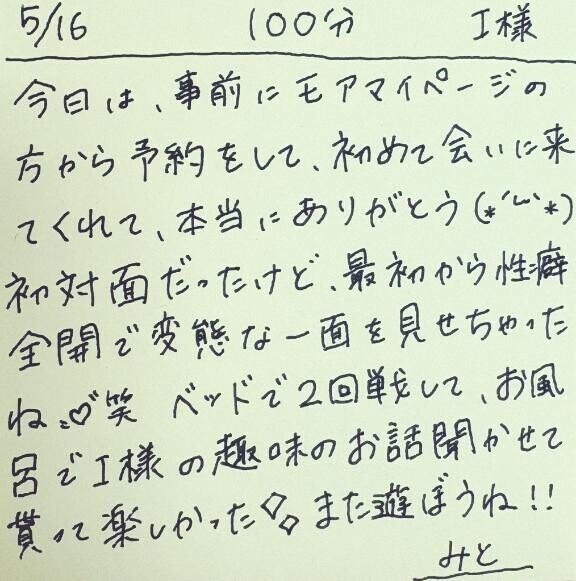 5/16 100分 I様
今日は、事前にモアマイページの
方から予約をして、初めて会いに来
てくれて、本当にありがとう(*´ω`*)
初対面だったけど、最初から性癖
全開で変態な一面を見せちゃった
ね♡笑 ベッドで2回戦して、お風
呂でI様の趣味のお話聞かせて
貰って楽しかった◇◇また遊ぼうね!!
みと